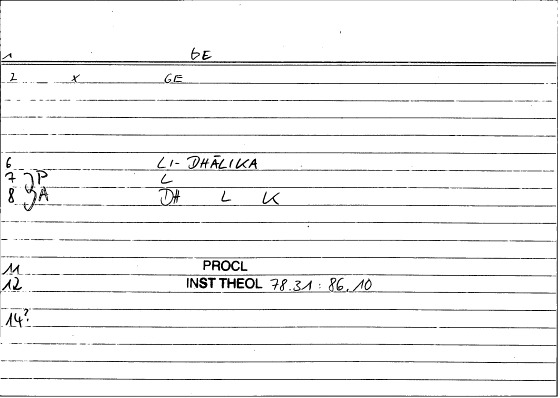 1 GE
2 x GE
6 LI- DHĀLIKA
7 P L
8 A DH L K
11 PROCL
12 INST THEOL 78.31 : 86.10
14?